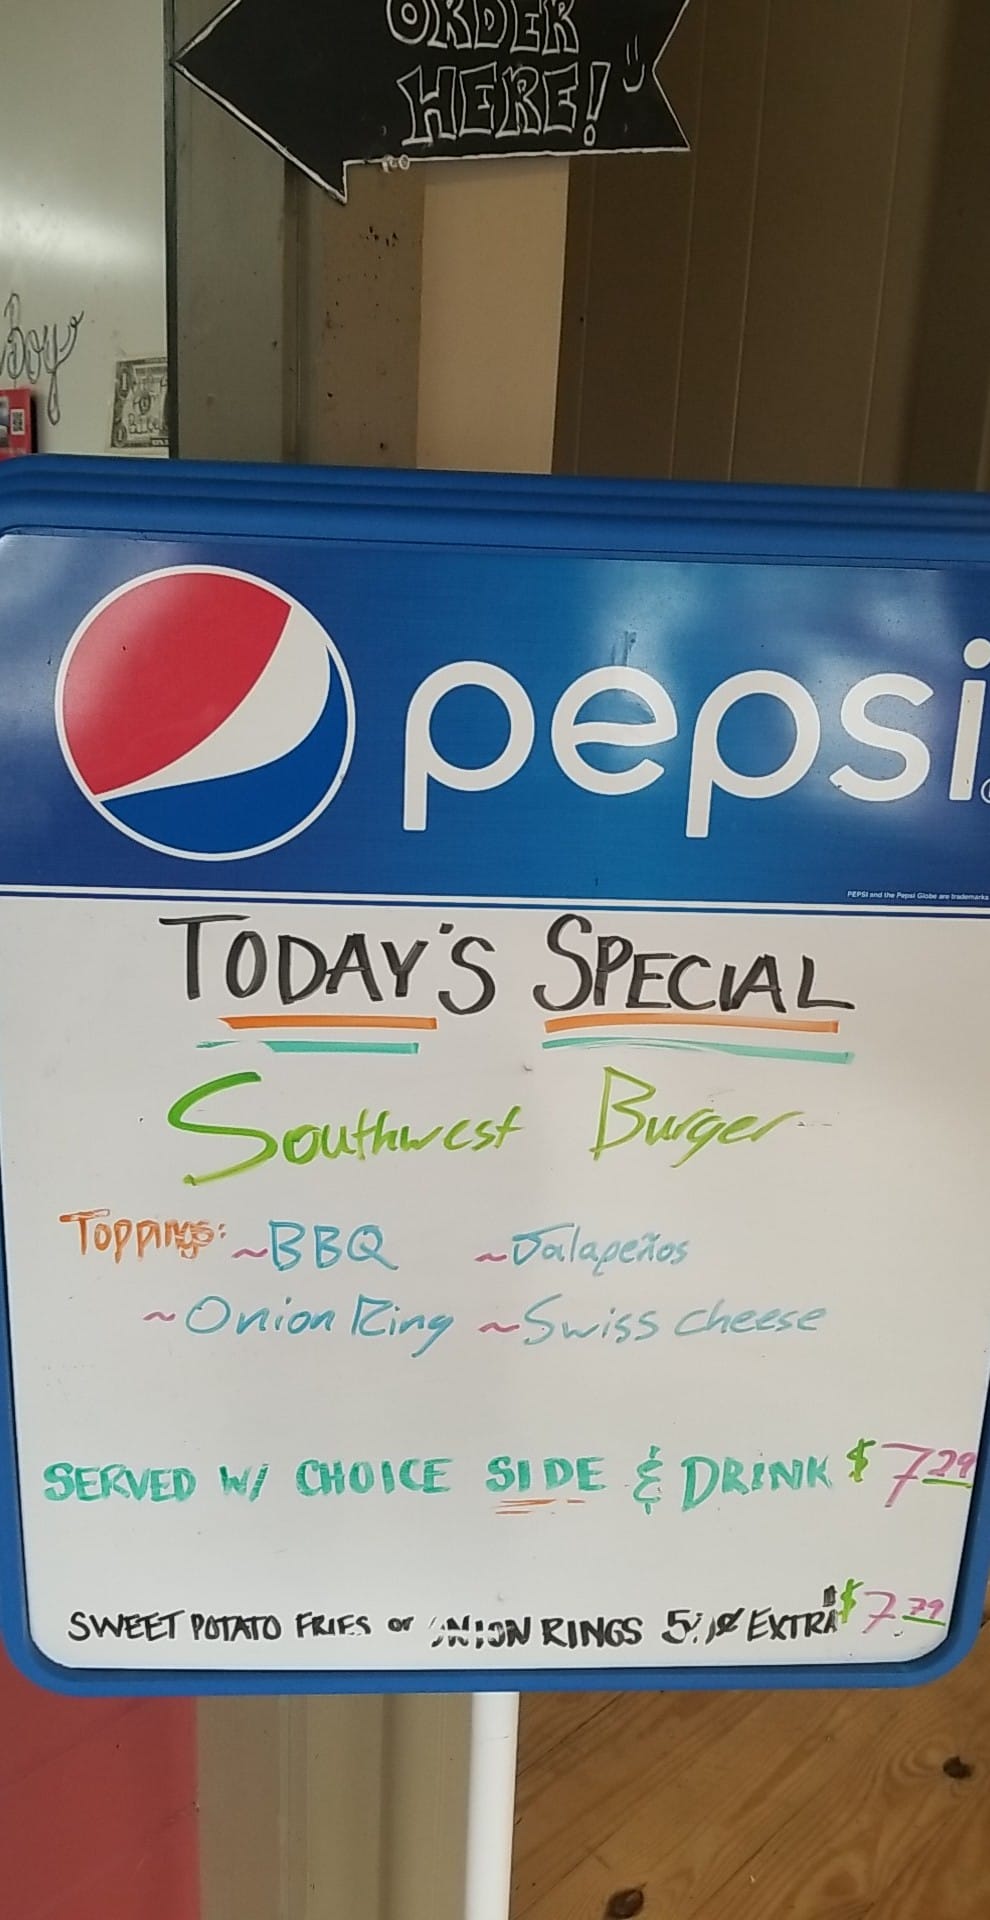 ORDER
HERE!
Boy
pepsi
PEPSI and the Pepsi Globe are trademarks
TODAY'S SPECIAL
Southwest Burger
Toppings: ~BBQ ~Jalapeños
~Onion Ring ~Swiss cheese
SERVED W/ CHOICE SIDE & DRINK $7.29
SWEET POTATO FRIES or ONION RINGS 50¢ EXTRA $7.79